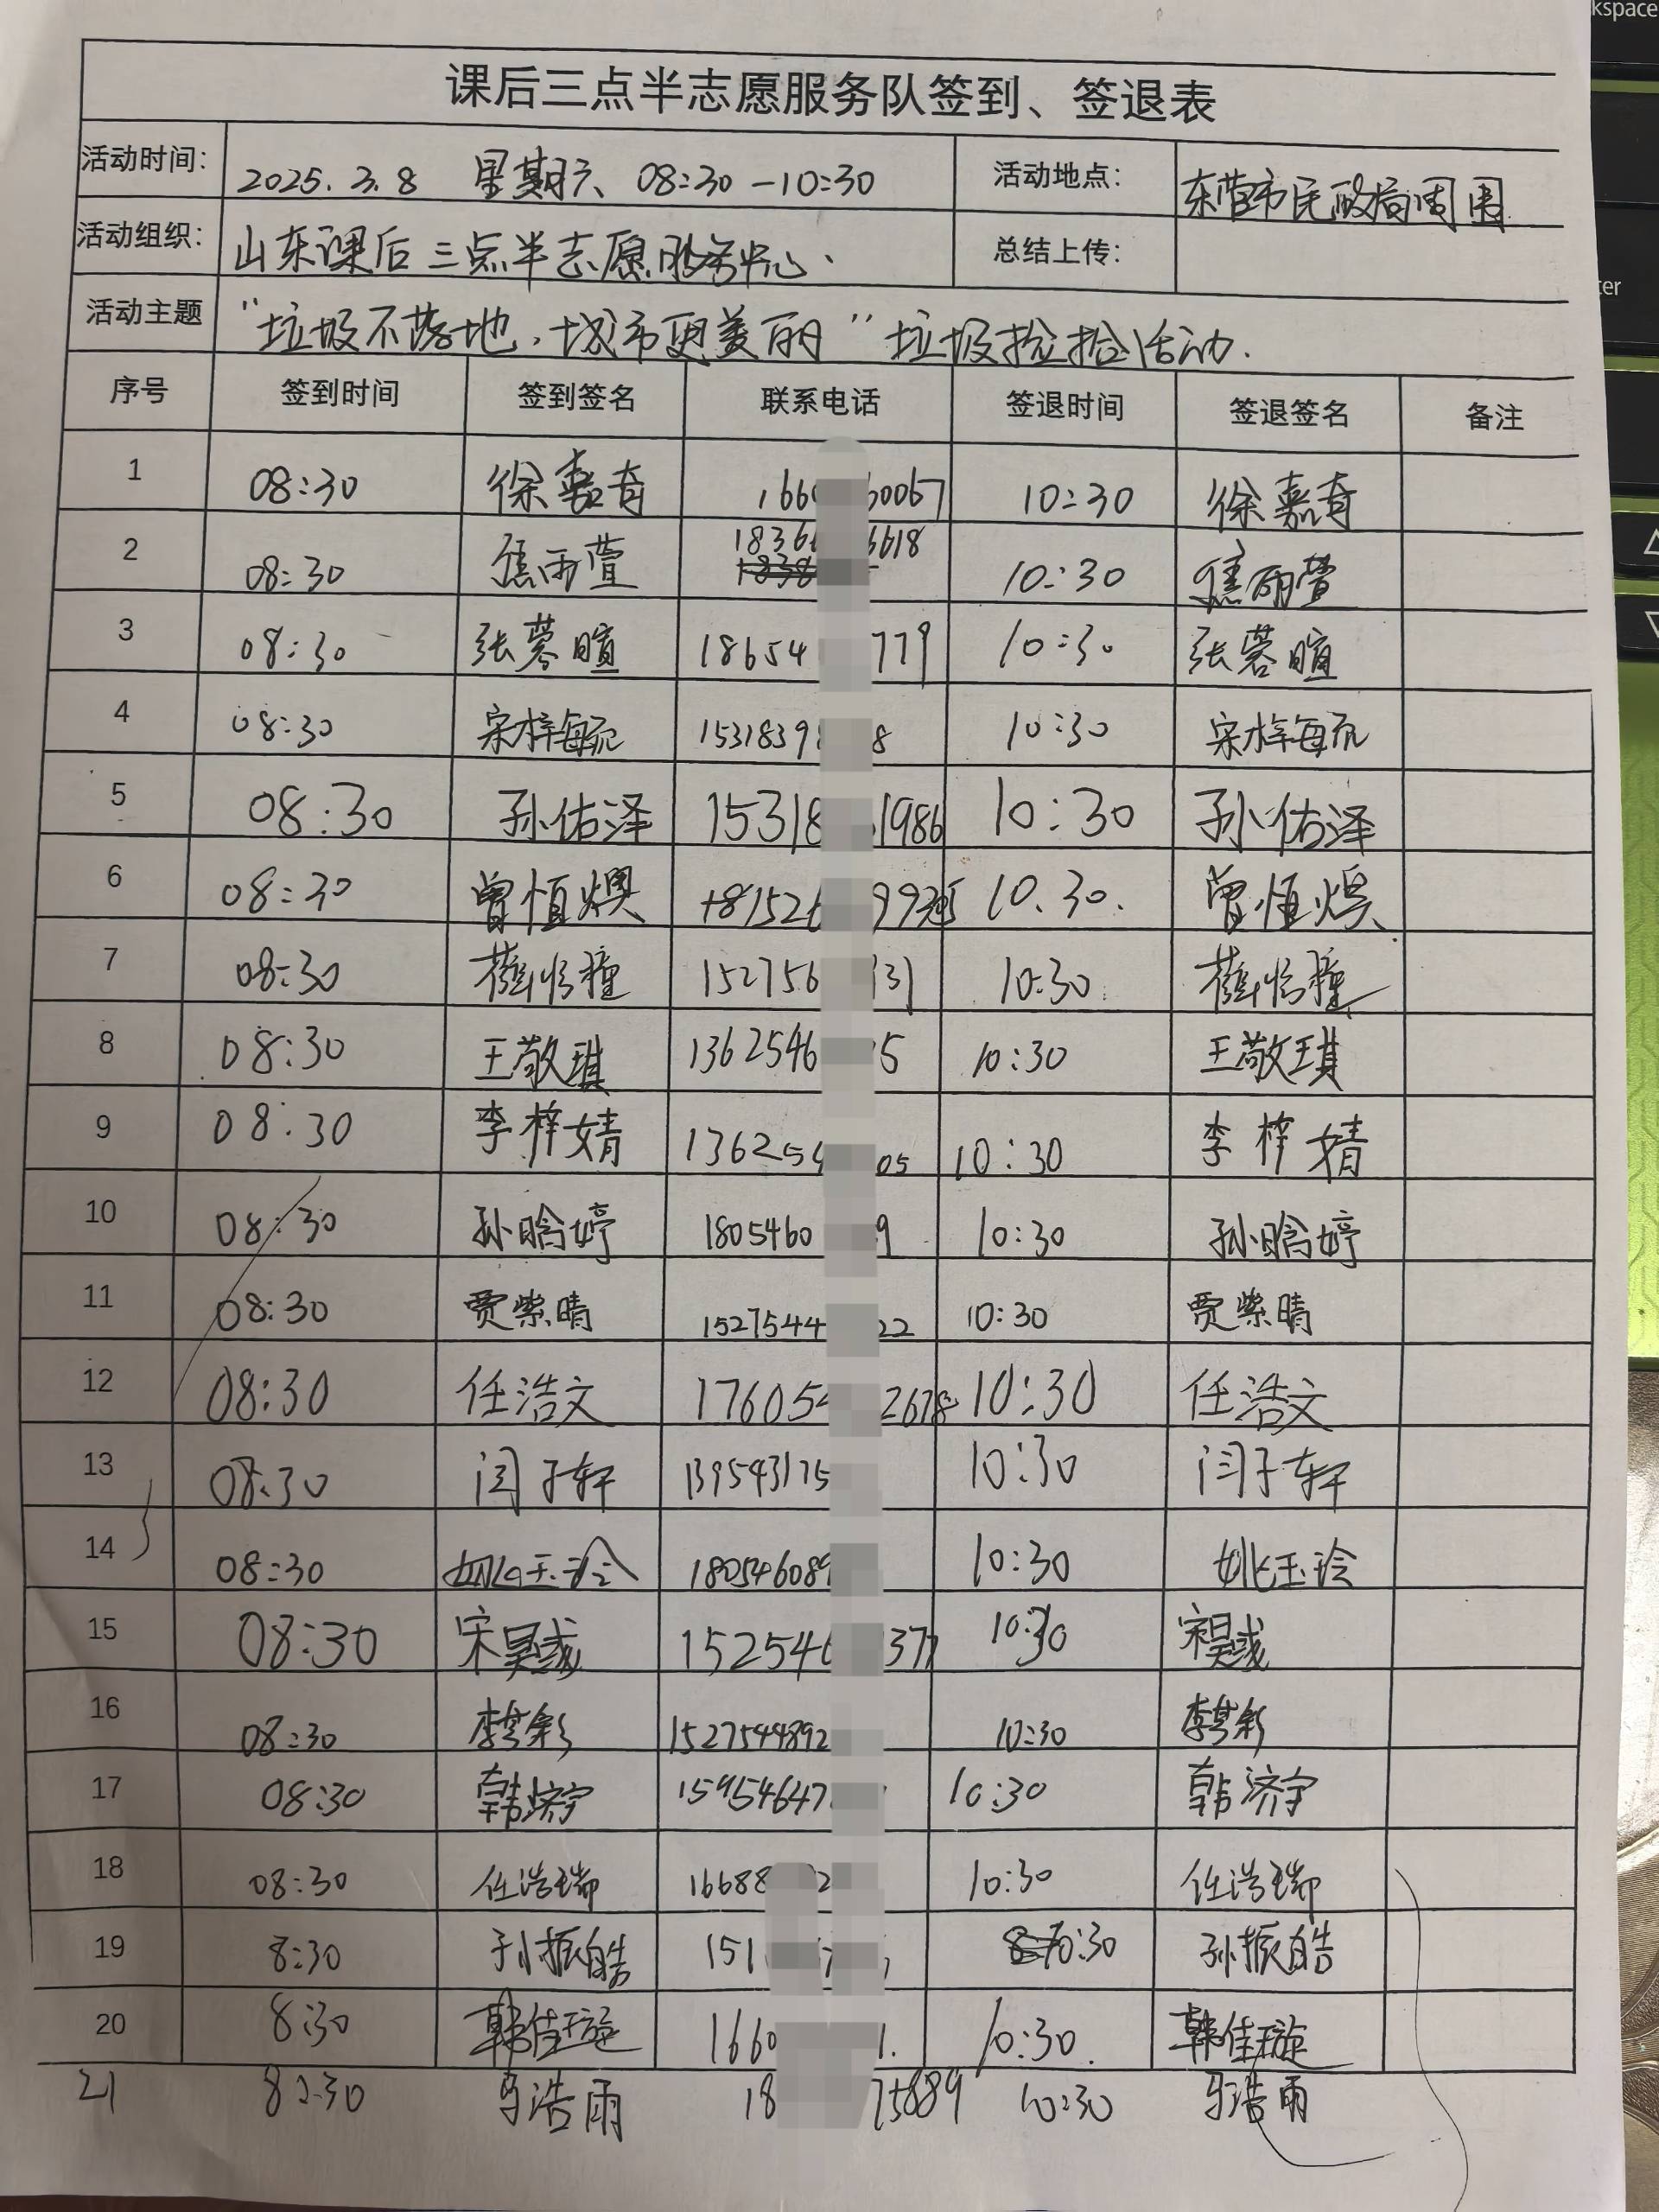 kspace
课后三点半志愿服务队签到、签退表
活动时间: 2025.3.8 星期六 08:30-10:30 活动地点: 东营市民政局周围
活动组织: 山东课后三点半志愿服务中心. 总结上传:
活动主题 “垃圾不落地,城市更美丽”垃圾捡拾活动.
序号 签到时间 签到签名 联系电话 签退时间 签退签名 备注
1 08:30 徐嘉奇 166 0067 10:30 徐嘉奇
2 08:30 焦雨萱 1836 6618 10:30 焦雨萱
3 08:30 张蓉暄 18654 779 10:30 张蓉暄
4 08:30 宋梓 1531839 8 10:30 宋梓
5 08:30 孙佑泽 15318 1986 10:30 孙佑泽
6 08:30 曾恒 +8152 10.30. 曾恒
7 08:30 152756 131 10:30
8 08:30 王敬琪 1362546 5 10:30 王敬琪
9 08:30 李梓婧 136254 05 10:30 李梓婧
10 08:30 孙晗婷 1805460 9 10:30 孙晗婷
11 08:30 贾紫晴 1527544 22 10:30 贾紫晴
12 08:30 任浩文 176054 2678 10:30 任浩文
13 08:30 闫子轩 139543175 10:30 闫子轩
14 08:30 姚玉玲 180546089 10:30 姚玉玲
15 08:30 宋昊彧 152546 377 10:30 宋昊彧
16 08:30 李 1527544892 10:30 李
17 08:30 韩济宇 15954647 10:30 韩济宇
18 08:30 任浩瑞 16688 2 10:30 任浩瑞
19 8:30 孙振皓 151 10:30 孙振皓
20 8:30 韩佳璇 1660 1. 10:30. 韩佳璇
21 8:30 马浩雨 18 75889 10:30 马浩雨